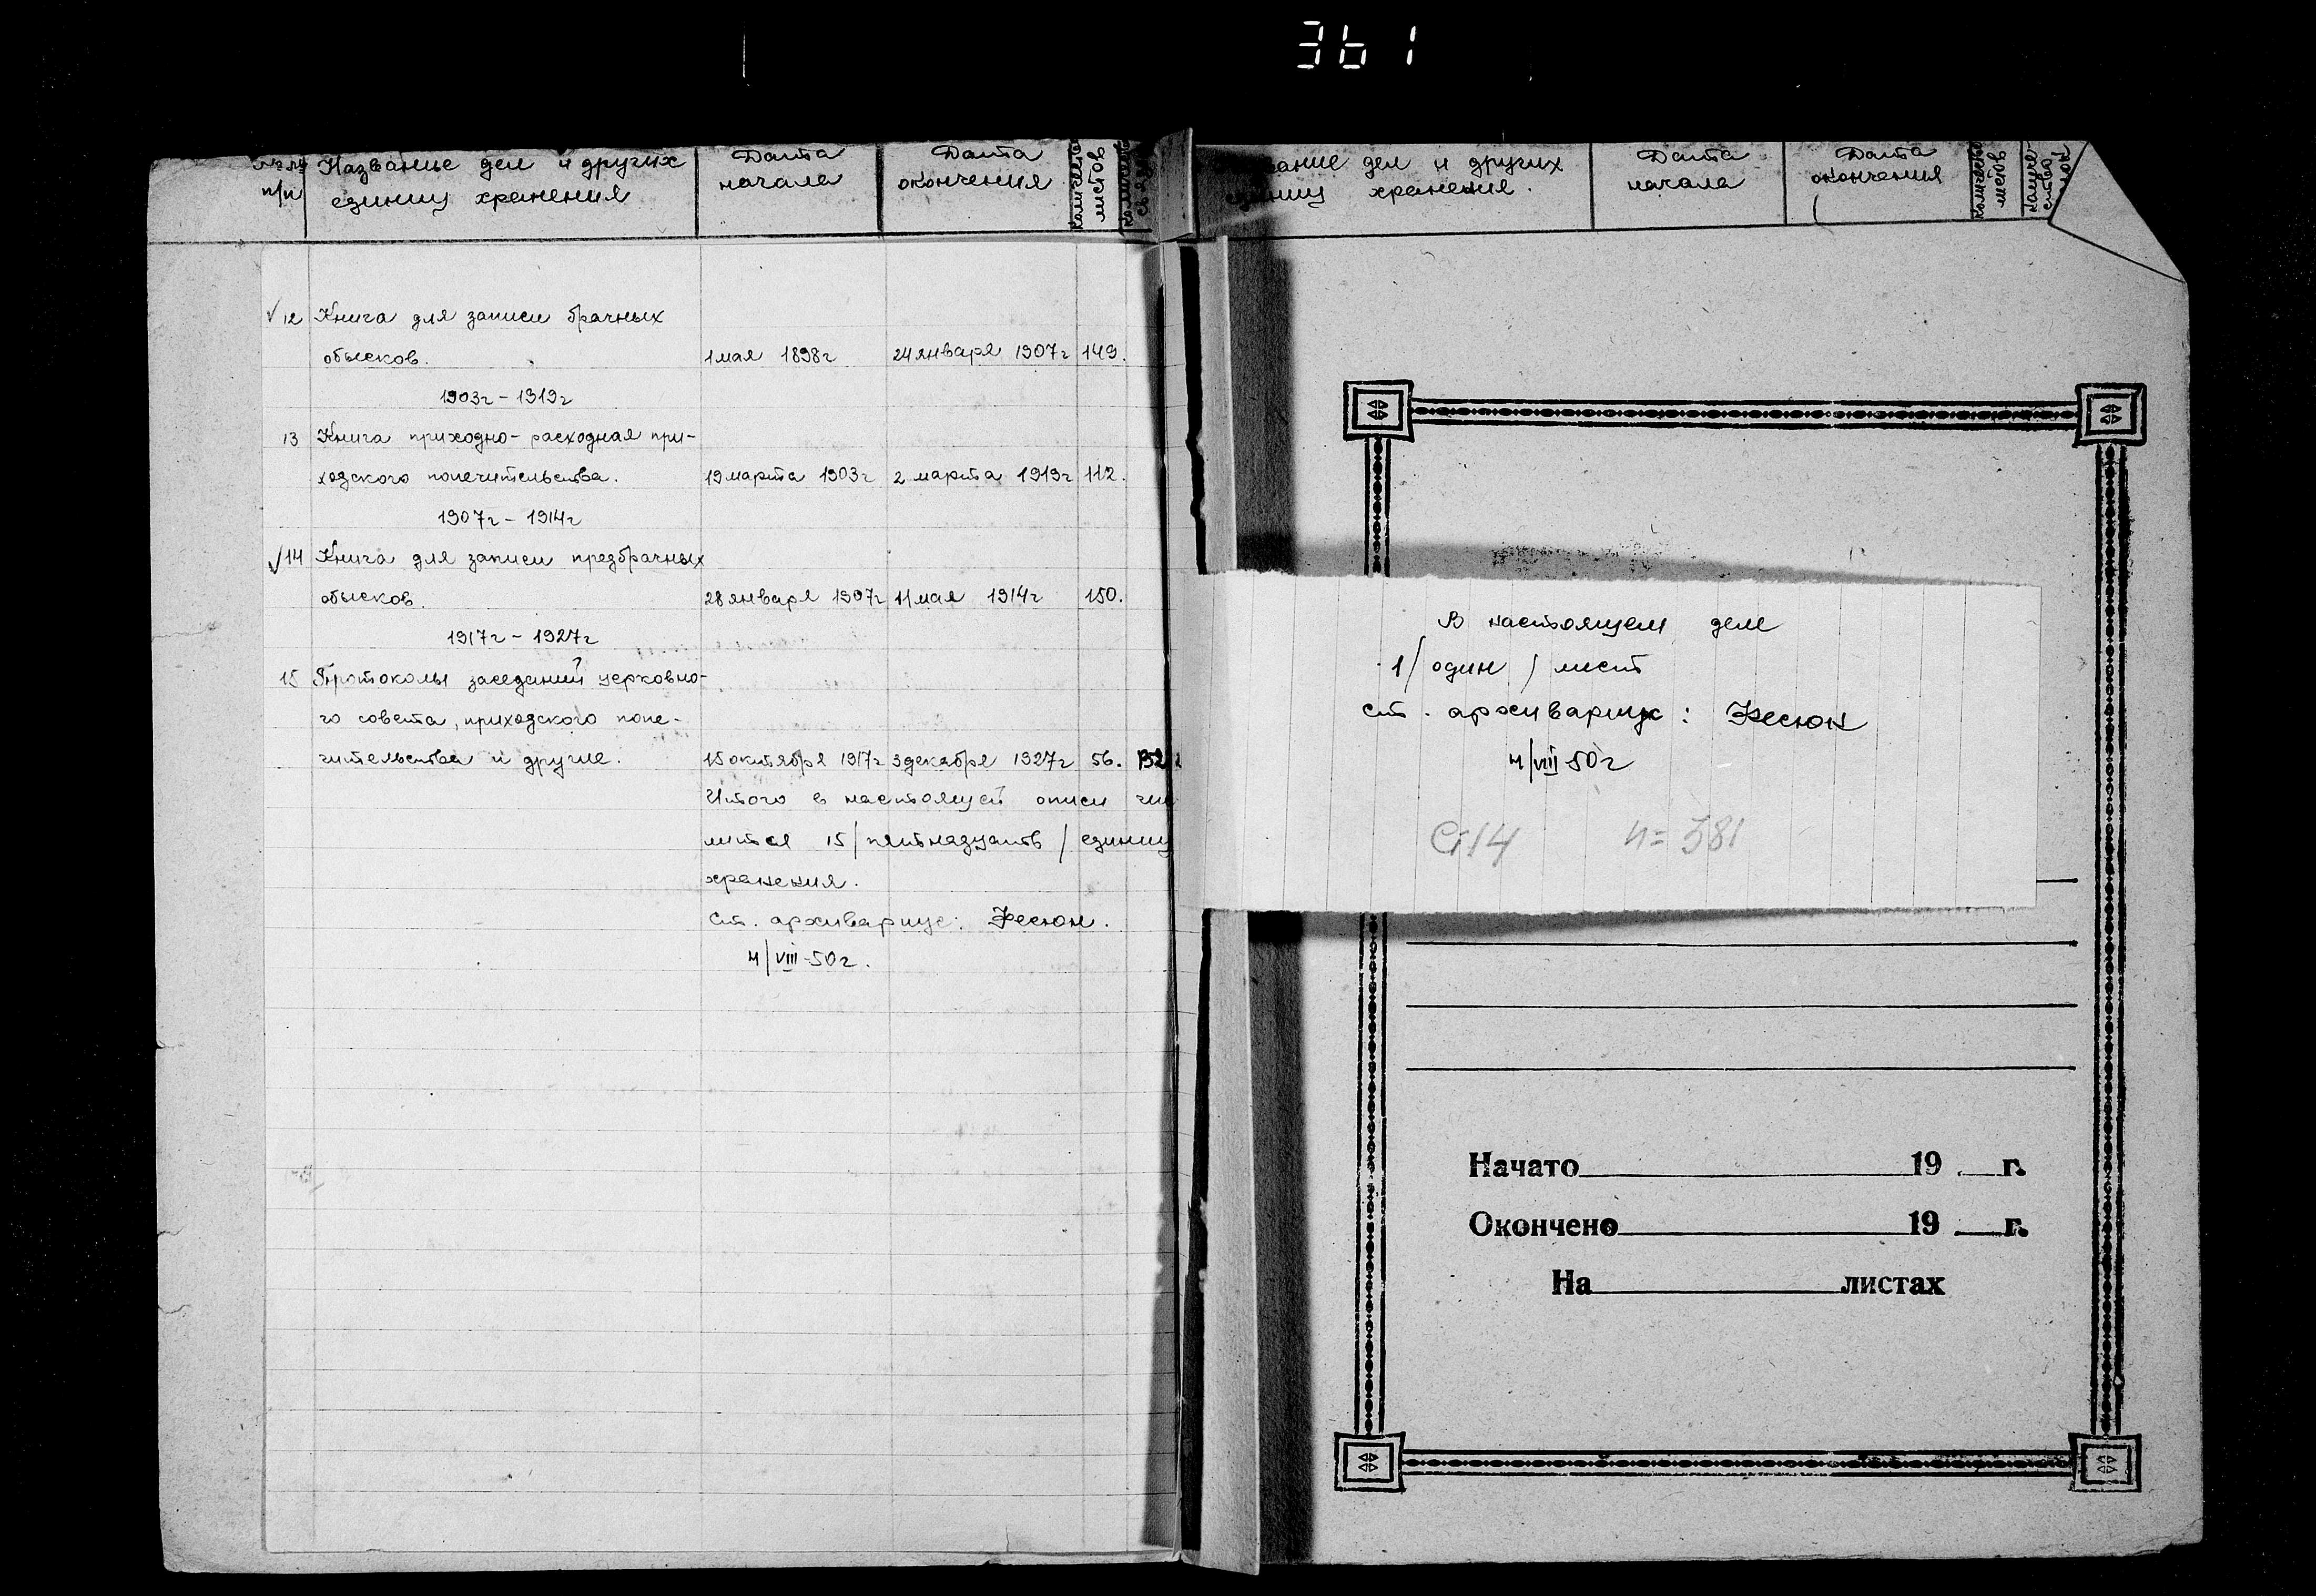 361
№№ Название дел и других
п/п единиц хранения
Дата
начала
Дата
окончения
количество
листов
единиц хранения.
Дата
начала
Дата
окончания
количество
листов
12 Книга для записи брачных
обысков. 1 мая 1898г 24 января 1907г 149.
1903г - 1919г
13 Книга приходно-расходная при-
ходского попечительства. 19 марта 1903г 2 марта 1919г 112.
1907г - 1914г
14 Книга для записи предбрачных
обысков. 28 января 1907г 11 мая 1914г 150.
1917г - 1927г
15 Протоколы заседаний церковно-
го совета, приходского попе-
чительства и другие. 15 октября 1917г 3 декабря 1927г 56.
Итого в настоящей описи чис
лится 15/пятнадцать/ единиц
хранения.
Ст. архивариус: Фесюн.
4/VIII-50г.
В настоящем деле
1/один/ лист
ст. архивариус: Фесюн
4/VIII 50г
n = 381
Начато 19 г.
Окончено 19 г.
На листах